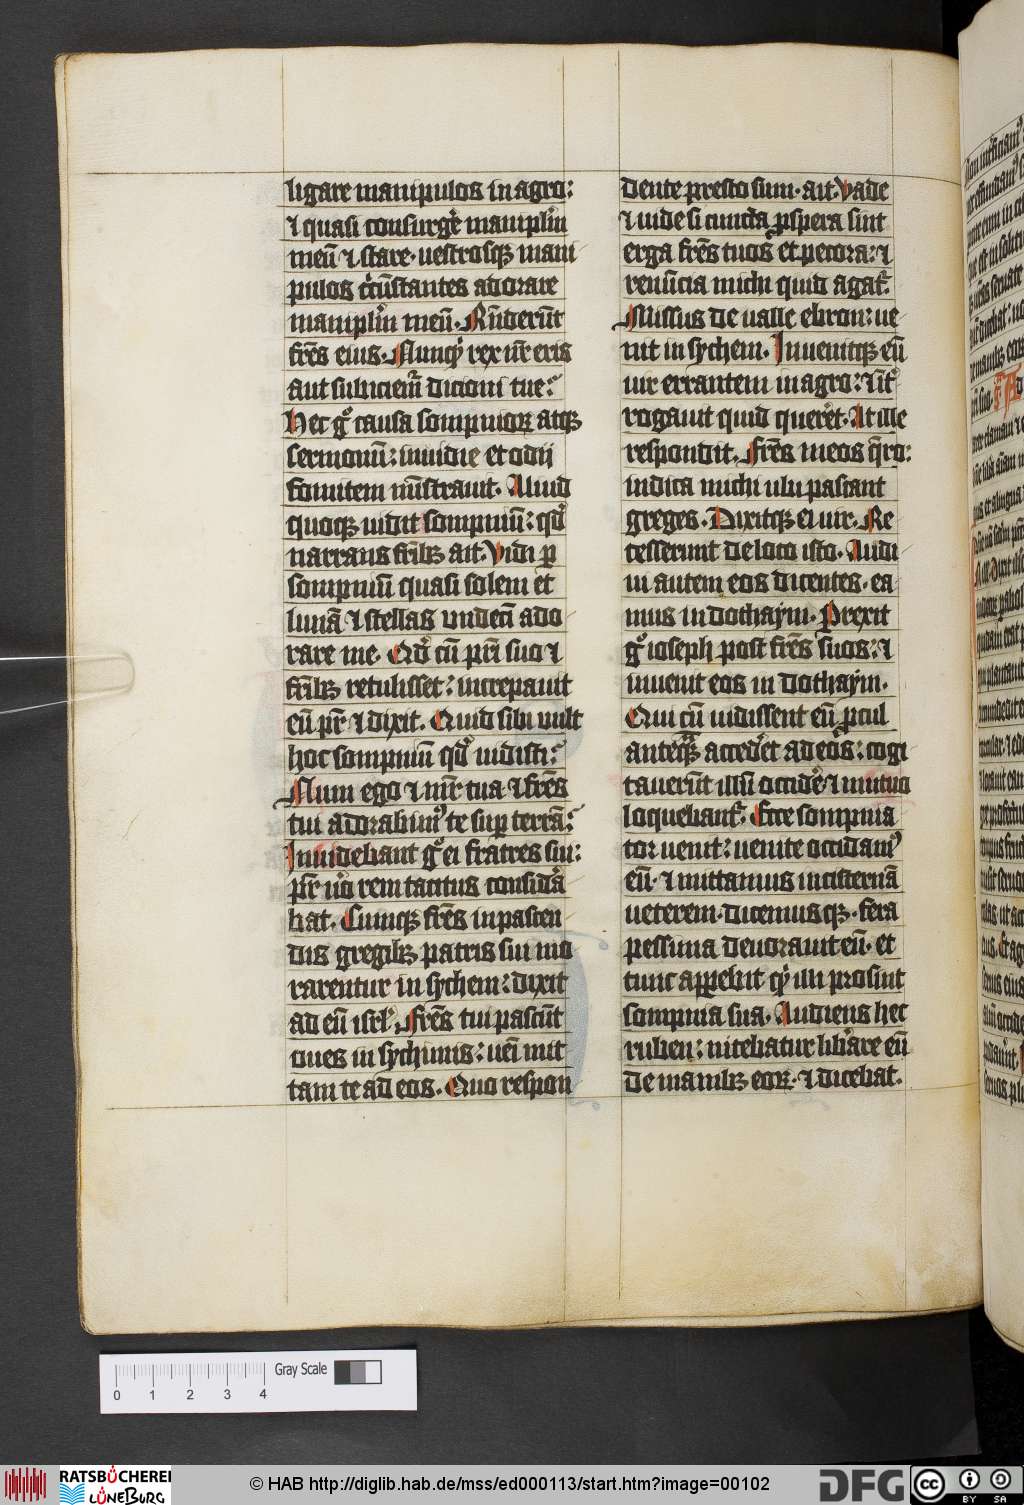 ligare manipulos in agro:
⁊ quasi consurgẽ maniplũ
meũ ⁊ stare. uestrosqꝫ mani
pulos c̃cũstantes adorare
maniplũ meũ. Rñderũt
frẽs eius. Nunqͥ rex nr̃ eris
aut subiciem̃ dicioni tue?
Hec gͦ causa sompnioꝝ atqꝫ
sermonũ: inuidie et odii
fomitem mĩstrauit. Aliud
quoqꝫ uidit sompniũ: qđ
narrans fr̃ibꝫ ait. Vidi ꝑ
sompniũ quasi solem et
lunã ⁊ stellas vndecĩ ado
rare me. Qđ cũ pr̃i suo ⁊
fr̃ibꝫ retulisset: increpauit
eũ pr̃ ⁊ dixit. Quid sibi uult
hoc sompniũ qđ uidisti?
Num ego ⁊ mr̃ tua ⁊ frẽs
tui adorabimꝰ te suꝑ terrã?
Inuidebant gͦ ei fratres sui:
pr̃ ũo rem tacitus consid̾a
bat. Cumqꝫ frẽs in pascen
dis gregibꝫ patris sui mo
rarentur in sychem: dixit
ad eũ isrl̃. Frẽs tui pascũt
oues in sychimis: ueĩ mit
tam te ad eos. Quo respon
dente presto sum. ait. Vade
⁊ uide si cuncta ꝓspera sint
erga frẽs tuos et pecora: ⁊
renũcia michi quid agat̃.
Missus de ualle ebron: ue
nit in sychem. Inuenitqꝫ eũ
uir errantem in agro: ⁊ int̾
rogauit quid querẽt. At ille
respondit. Frẽs meos q̃ro:
indica michi ubi pascant
greges. Dixitqꝫ ei uir. Re
cesserunt de loco isto. Audi
ui autem eos dicentes. ea
mus in dothaym. Prexit
gͦ ioseph post frẽs suos: ⁊
inuenit eos in dothaym.
Qui cũ uidissent eũ ꝓcul
anteqͣꝫ accedẽt ad eos: cogi
tauerũt illũ occidẽ. ⁊ mutuo
loquebant̃. Ecce sompnia
tor uenit: uenite occidamꝰ
eũ. ⁊ mittamus in cisternã
ueterem. dicemusqꝫ. fera
pessima deuorauit eũ. et
tunc apꝑebit qͥ illi prosint
sompnia sua. Audiens hec
ruben: nitebatur lib̾are eũ
de manibꝫ eoꝝ. ⁊ dicebat.
Gray Scale
0 1 2 3 4
RATSBÜCHEREI
LÜNEBURG
© HAB http://diglib.hab.de/mss/ed000113/start.htm?image=00102
DFG
cc
BY SA